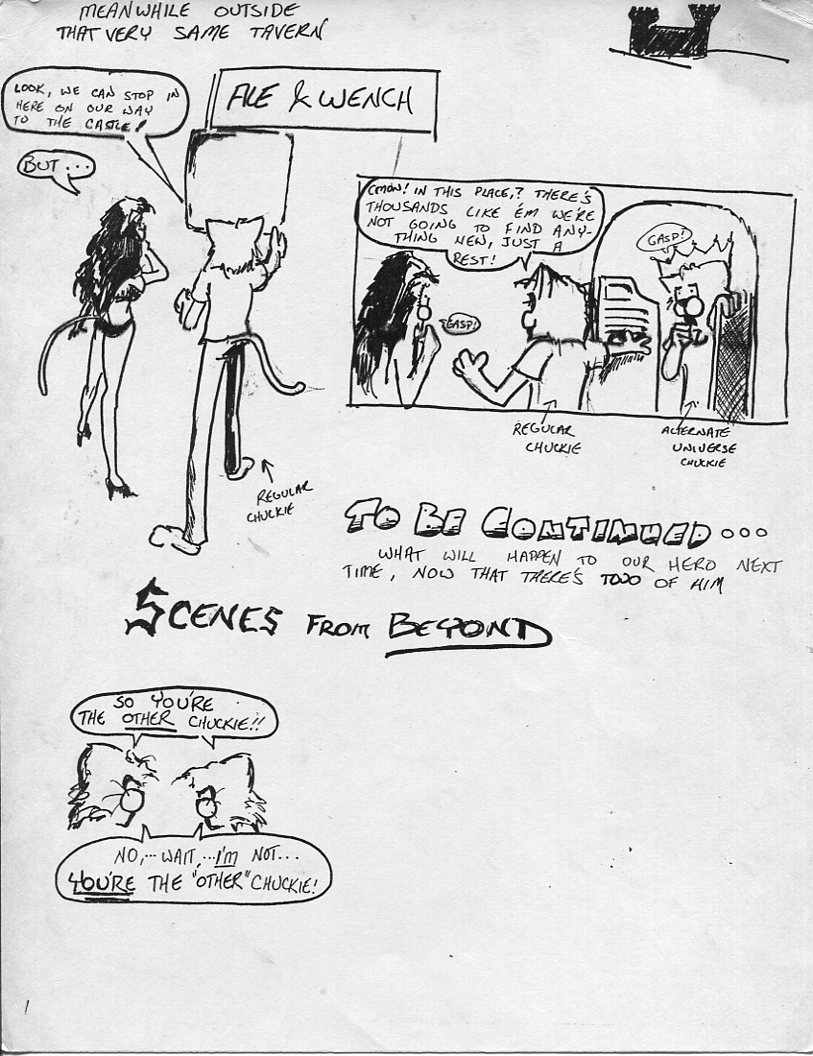 MEANWHILE OUTSIDE
THAT VERY SAME TAVERN
LOOK, WE CAN STOP IN
HERE ON OUR WAY
TO THE CASTLE!
BUT...
ALE & WENCH
REGULAR
CHUCKIE
C'MON! IN THIS PLACE,? THERE'S
THOUSANDS LIKE 'EM WE'RE
NOT GOING TO FIND ANY-
THING NEW, JUST A
REST!
GASP!
GASP!
REGULAR
CHUCKIE
ALTERNATE
UNIVERSE
CHUCKIE
TO BE CONTINUED...
WHAT WILL HAPPEN TO OUR HERO NEXT
TIME, NOW THAT THERE'S TWO OF HIM
SCENES FROM BEYOND
SO YOU'RE
THE OTHER CHUCKIE!!
NO,... WAIT,...I'M NOT...
YOU'RE THE "OTHER" CHUCKIE!